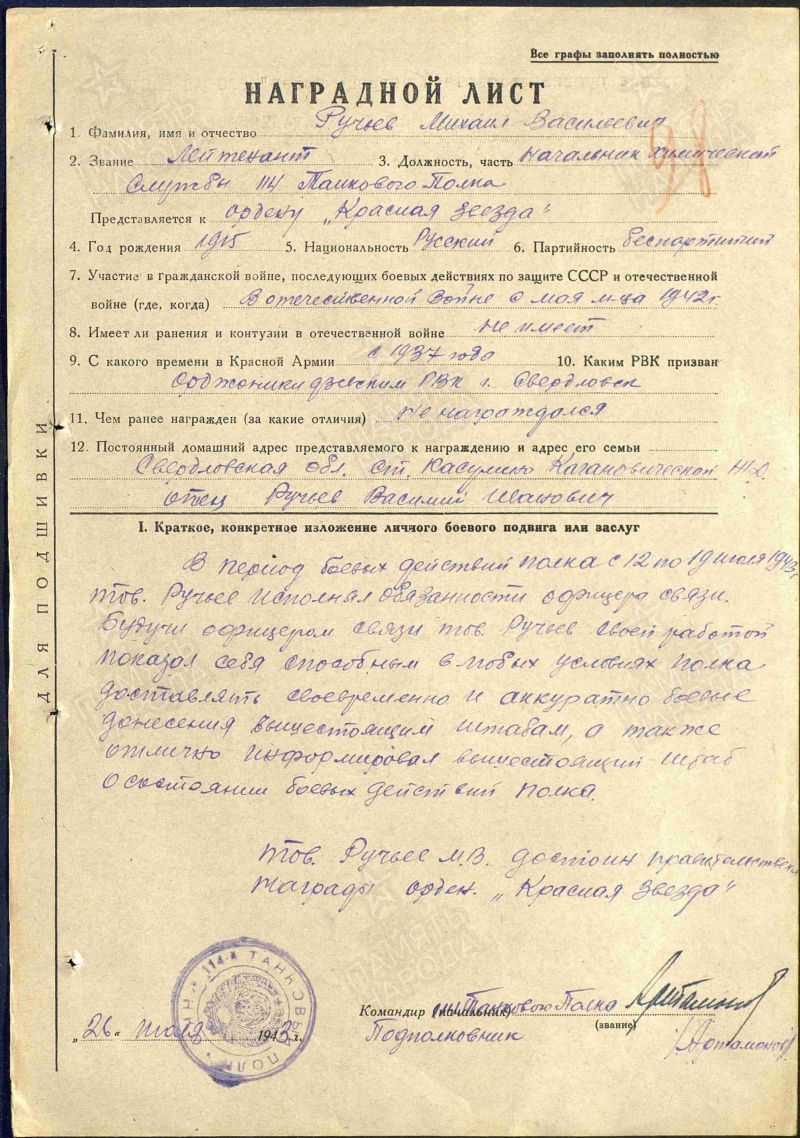 Все графы заполнять полностью
НАГРАДНОЙ ЛИСТ
1. Фамилия, имя и отчество Ручьев Михаил Васильевич
2. Звание Лейтенант 3. Должность, часть Начальник химической
Службы 114 Танкового Полка
Представляется к ордену „Красная Звезда"
4. Год рождения 1915 5. Национальность Русский 6. Партийность беспартийный
7. Участие в гражданской войне, последующих боевых действиях по защите СССР и отечественной
войне (где, когда) В отечественной войне с мая м-ца 1942г
8. Имеет ли ранения и контузии в отечественной войне Не имеет
9. С какого времени в Красной Армии с 1937 года 10. Каким РВК призван
Орджоникидзевским РВК г. Свердловск
11. Чем ранее награжден (за какие отличия) Не награждался
12. Постоянный домашний адрес представляемого к награждению и адрес его семьи
Свердловская обл. ст. Кагановической ж.д.
отец Ручьев Василий Иванович
I. Краткое, конкретное изложение личного боевого подвига или заслуг
В период боевых действий полка с 12 по 19 июля 1943г
тов. Ручьев исполнял обязанности офицера связи.
Будучи офицером связи тов. Ручьев своей работой
показал себя способным в любых условиях полка
доставлять своевременно и аккуратно боевые
донесения вышестоящим штабам, а также
отлично информировал вышестоящий штаб
о состоянии боевых действий полка.
тов. Ручьев М.В. достоин правительственной
награды орден. „Красная Звезда"
Командир (начальник) 114 Танкового Полка
(звание)
Подполковник /Артамонов/
„26" 1943 г.
114 ТАНКОВЫЙ ПОЛК
ДЛЯ ПОДШИВКИ
ПАМЯТЬ НАРОДА